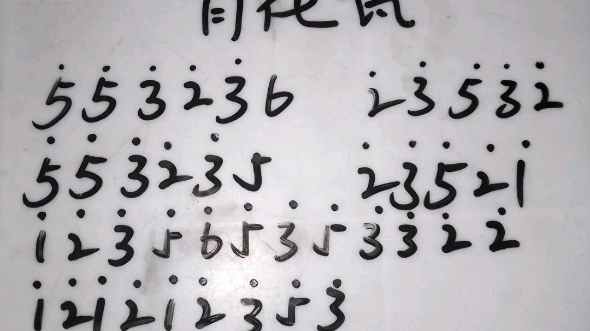 青花瓷
5̇ 5̇ 3̇ 2̇ 3̇ 6 2̇ 3̇ 5̇ 3̇ 2̇
5̇ 5̇ 3̇ 2̇ 3̇ 5 2̇ 3̇ 5̇ 2̇ 1̇
1̇ 2̇ 3̇ 5̇ 6̇ 5̇ 3̇ 5̇ 3̇ 3̇ 2̇ 2̇
1̇ 2̇ 1̇ 2̇ 1̇ 2̇ 3̇ 5̇ 3̇